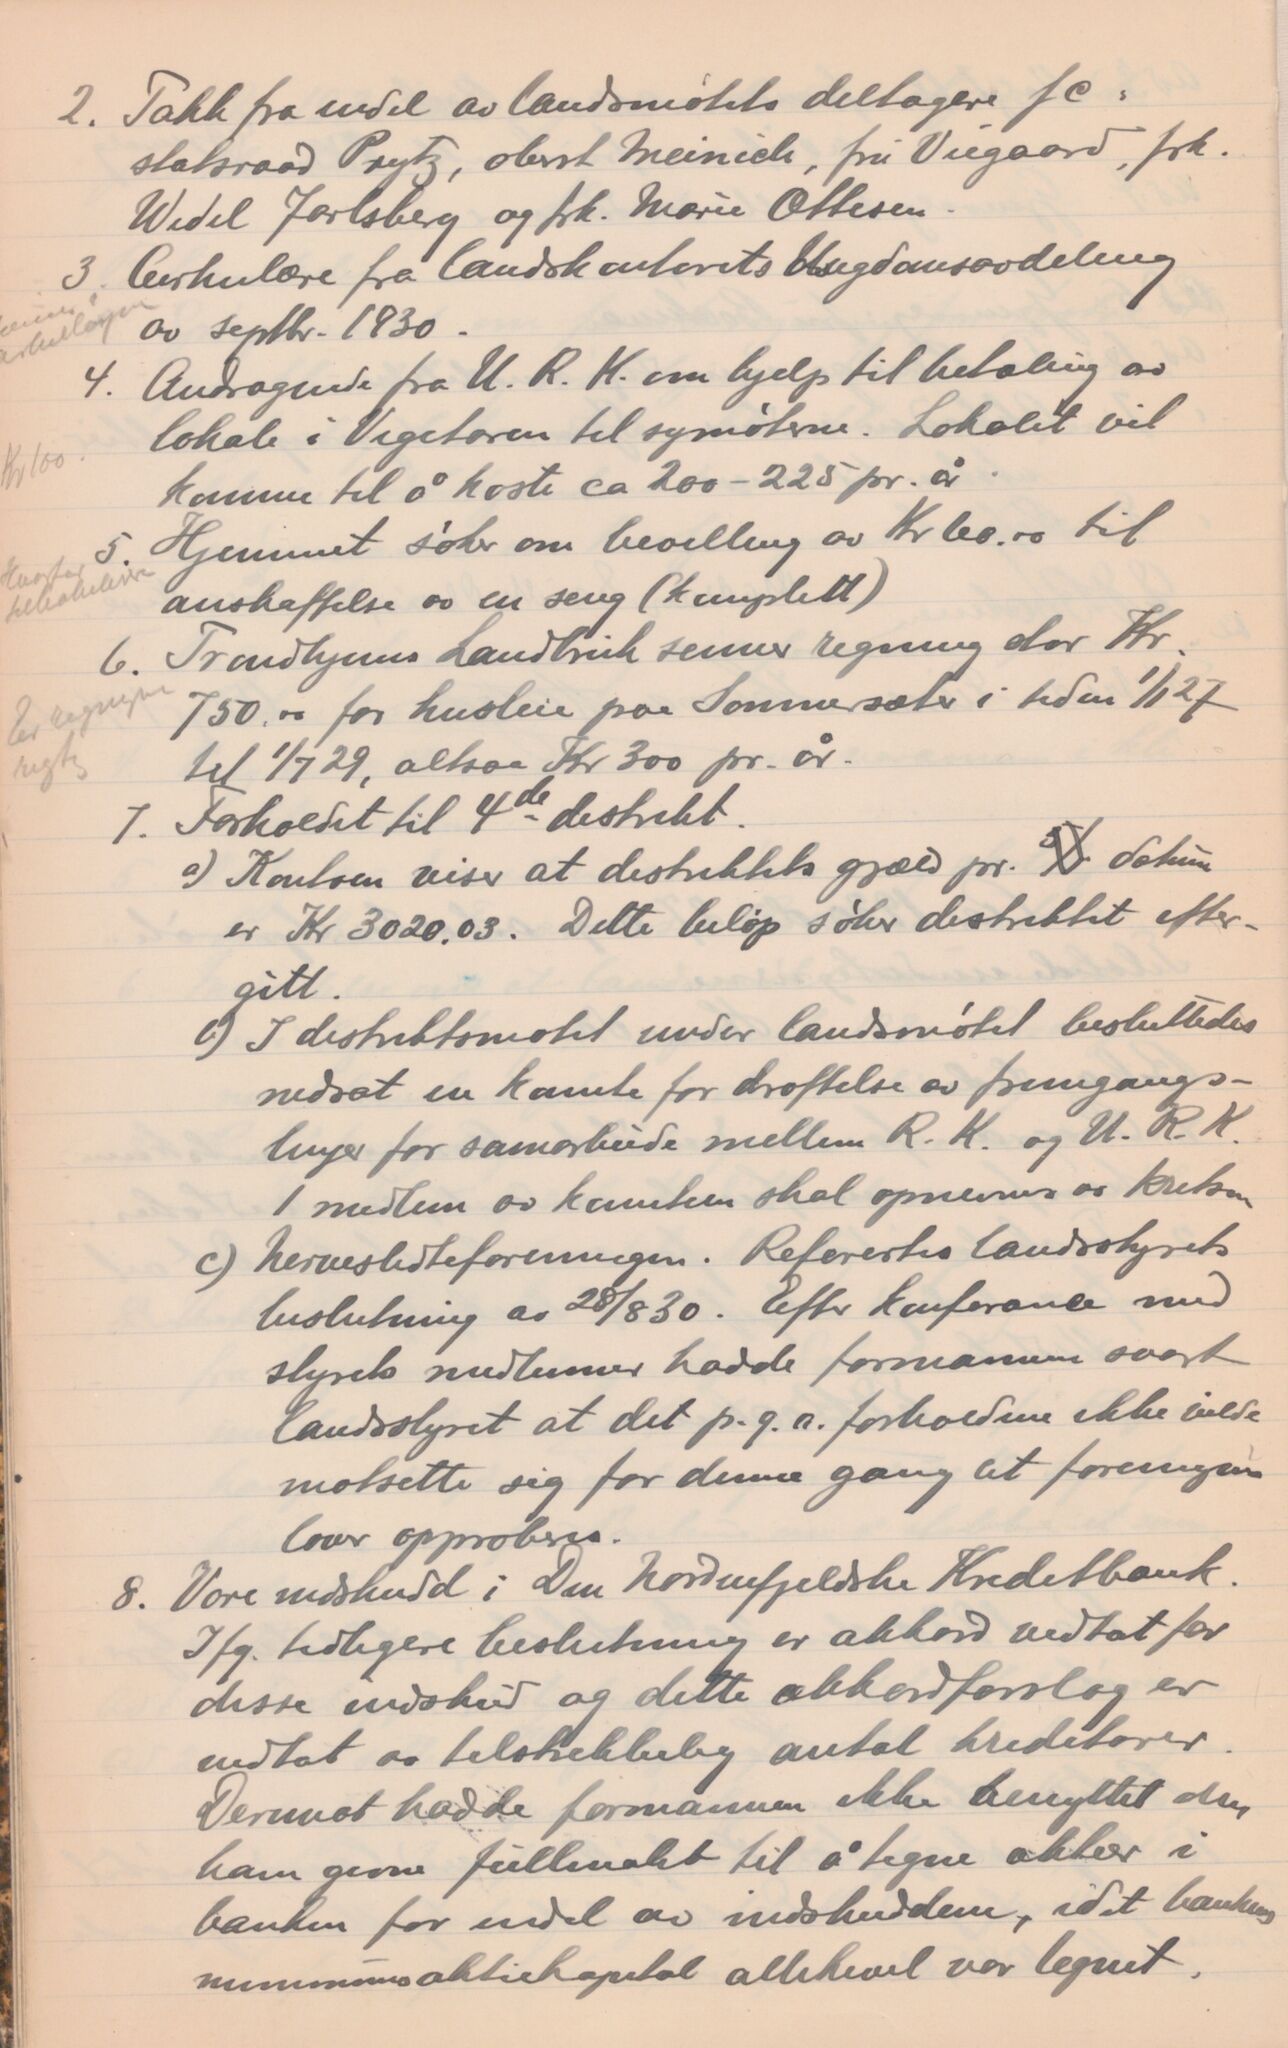 2. Takk fra endel av landsmøtets deltagere f e:
statsraad Prytz, oberst Meinich, fru Viegaard, frk.
Wedel Jarlsberg og frk. Marie Ottesen.
3. Cirkulære fra landskontorets Ungdomsavdeling
av septbr. 1930.
4. Andragende fra U. R. K. om hjelp til betaling av
lokale i Vegetaren til symøterne. Lokalet vil
komme til å koste ca 200–225 pr. år.
Kr 100.
5. Hjemmet søker om bevilling av Kr 60.00 til
anskaffelse av en seng (komplett)
6. Trondhjems Landbruk senner regning stor Kr.
750.00 for husleie paa Sommersæter i tiden 1/1 27
til 1/7 29, altsaa Kr 300 pr. år.
Er regningen
rigtig
7. Forholdet til 4de distrikt.
a) Kontoen viser at distriktets gjæld pr. datum
er Kr 3020.03. Dette beløp søker distriktet efter-
gitt.
b) I distriktsmøtet under landsmøtet besluttedes
nedsat en komite for drøftelse av fremgangs-
linjer for samarbeide mellem R. K. og U. R. K.
1 medlem av komiteen skal opnevnes av kretsen
c) Nerveslidteforeningen. Refererdes landsstyrets
beslutning av 28/8 30. Efter konferance med
styrets medlemmer hadde formannen svart
landsstyret at det p. g. a. forholdene ikke vilde
motsette sig for denne gang at foreningens
lover approberes.
8. Vore indskudd i Den Nordenfjeldske Kreditbank.
Ifg. tidligere beslutning er akkord vedtat for
disse indskud og dette akkordforslag er
vedtat av tilstrekkelig antal kreditorer.
Derimot hadde formannen ikke benyttet den
ham givne fullmakt til å tegne aktier i
banken for endel av indskuddene, idet bankens
minimumsaktiekapital allikevel var tegnet.